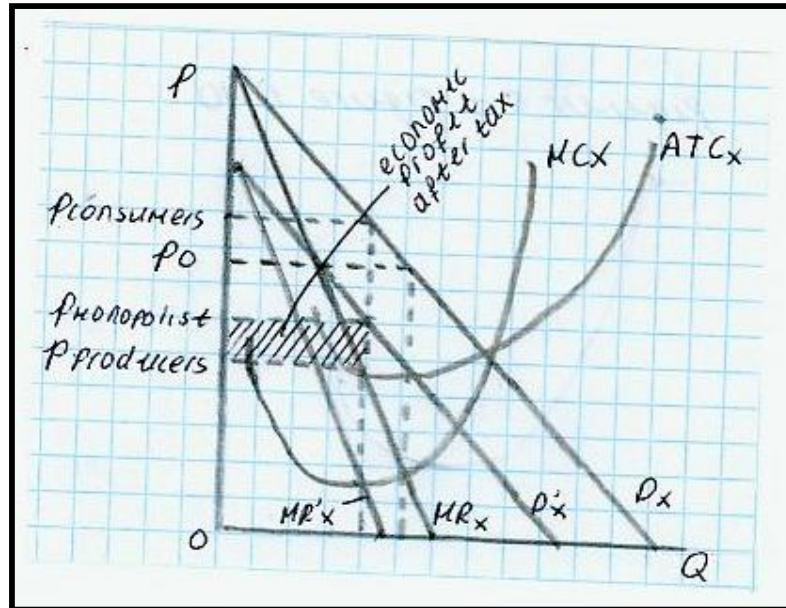 P
economic
profit
after tax
MCX
ATCx
Pconsumers
PO
Pmonopolist
Pproducers
MR'x
MRx
D'x
Dx
O
Q